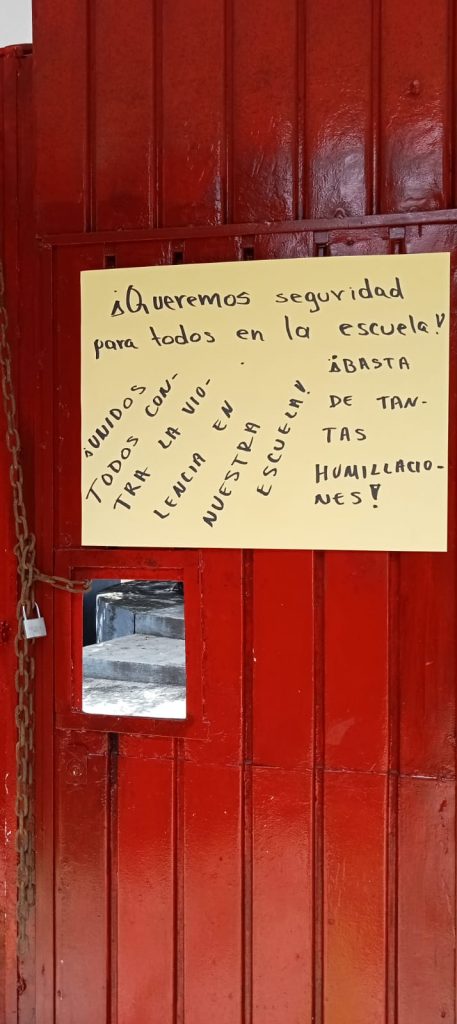 ¡Queremos seguridad
para todos en la escuela!
¡UNIDOS
TODOS CON-
TRA LA VIO-
LENCIA EN
NUESTRA
ESCUELA!
¡BASTA
DE TAN-
TAS
HUMILLACIO-
NES!